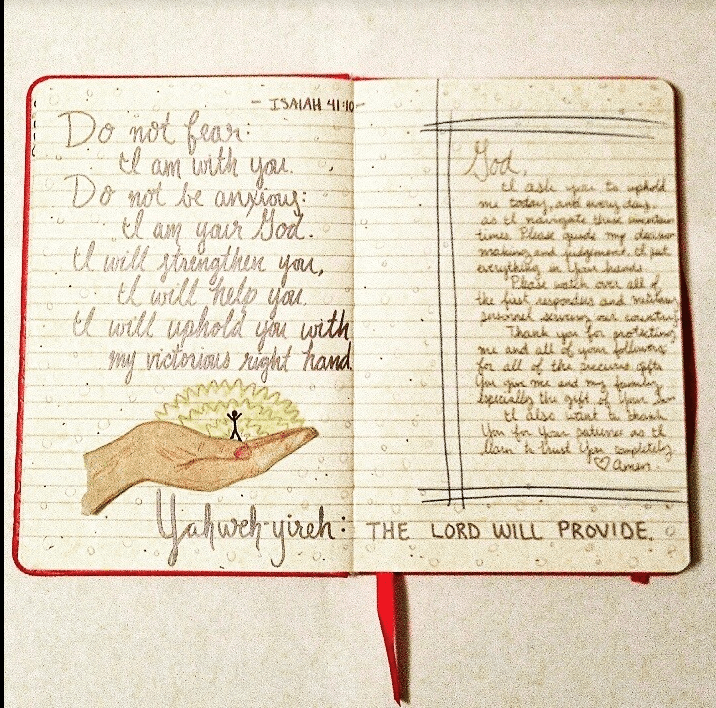 - ISAIAH 41:10 -
Do not fear:
I am with you.
Do not be anxious:
I am your God.
I will strengthen you,
I will help you
I will uphold you with
my victorious right hand.
God,
I ask you to uphold
me today, and every day,
as I navigate these uncertain
times. Please guide my decision
making and judgement. I put
everything in Your hands.
Please watch over all of
the first responders and military
personnel serving our country.
Thank you for protecting
me and all of your followers
for all of the precious gifts
You give me and my family,
especially the gift of Your Son.
I also want to thank
You for Your patience as I
learn to trust You completely.
♡ Amen.
Yahweh-yireh: THE LORD WILL PROVIDE.